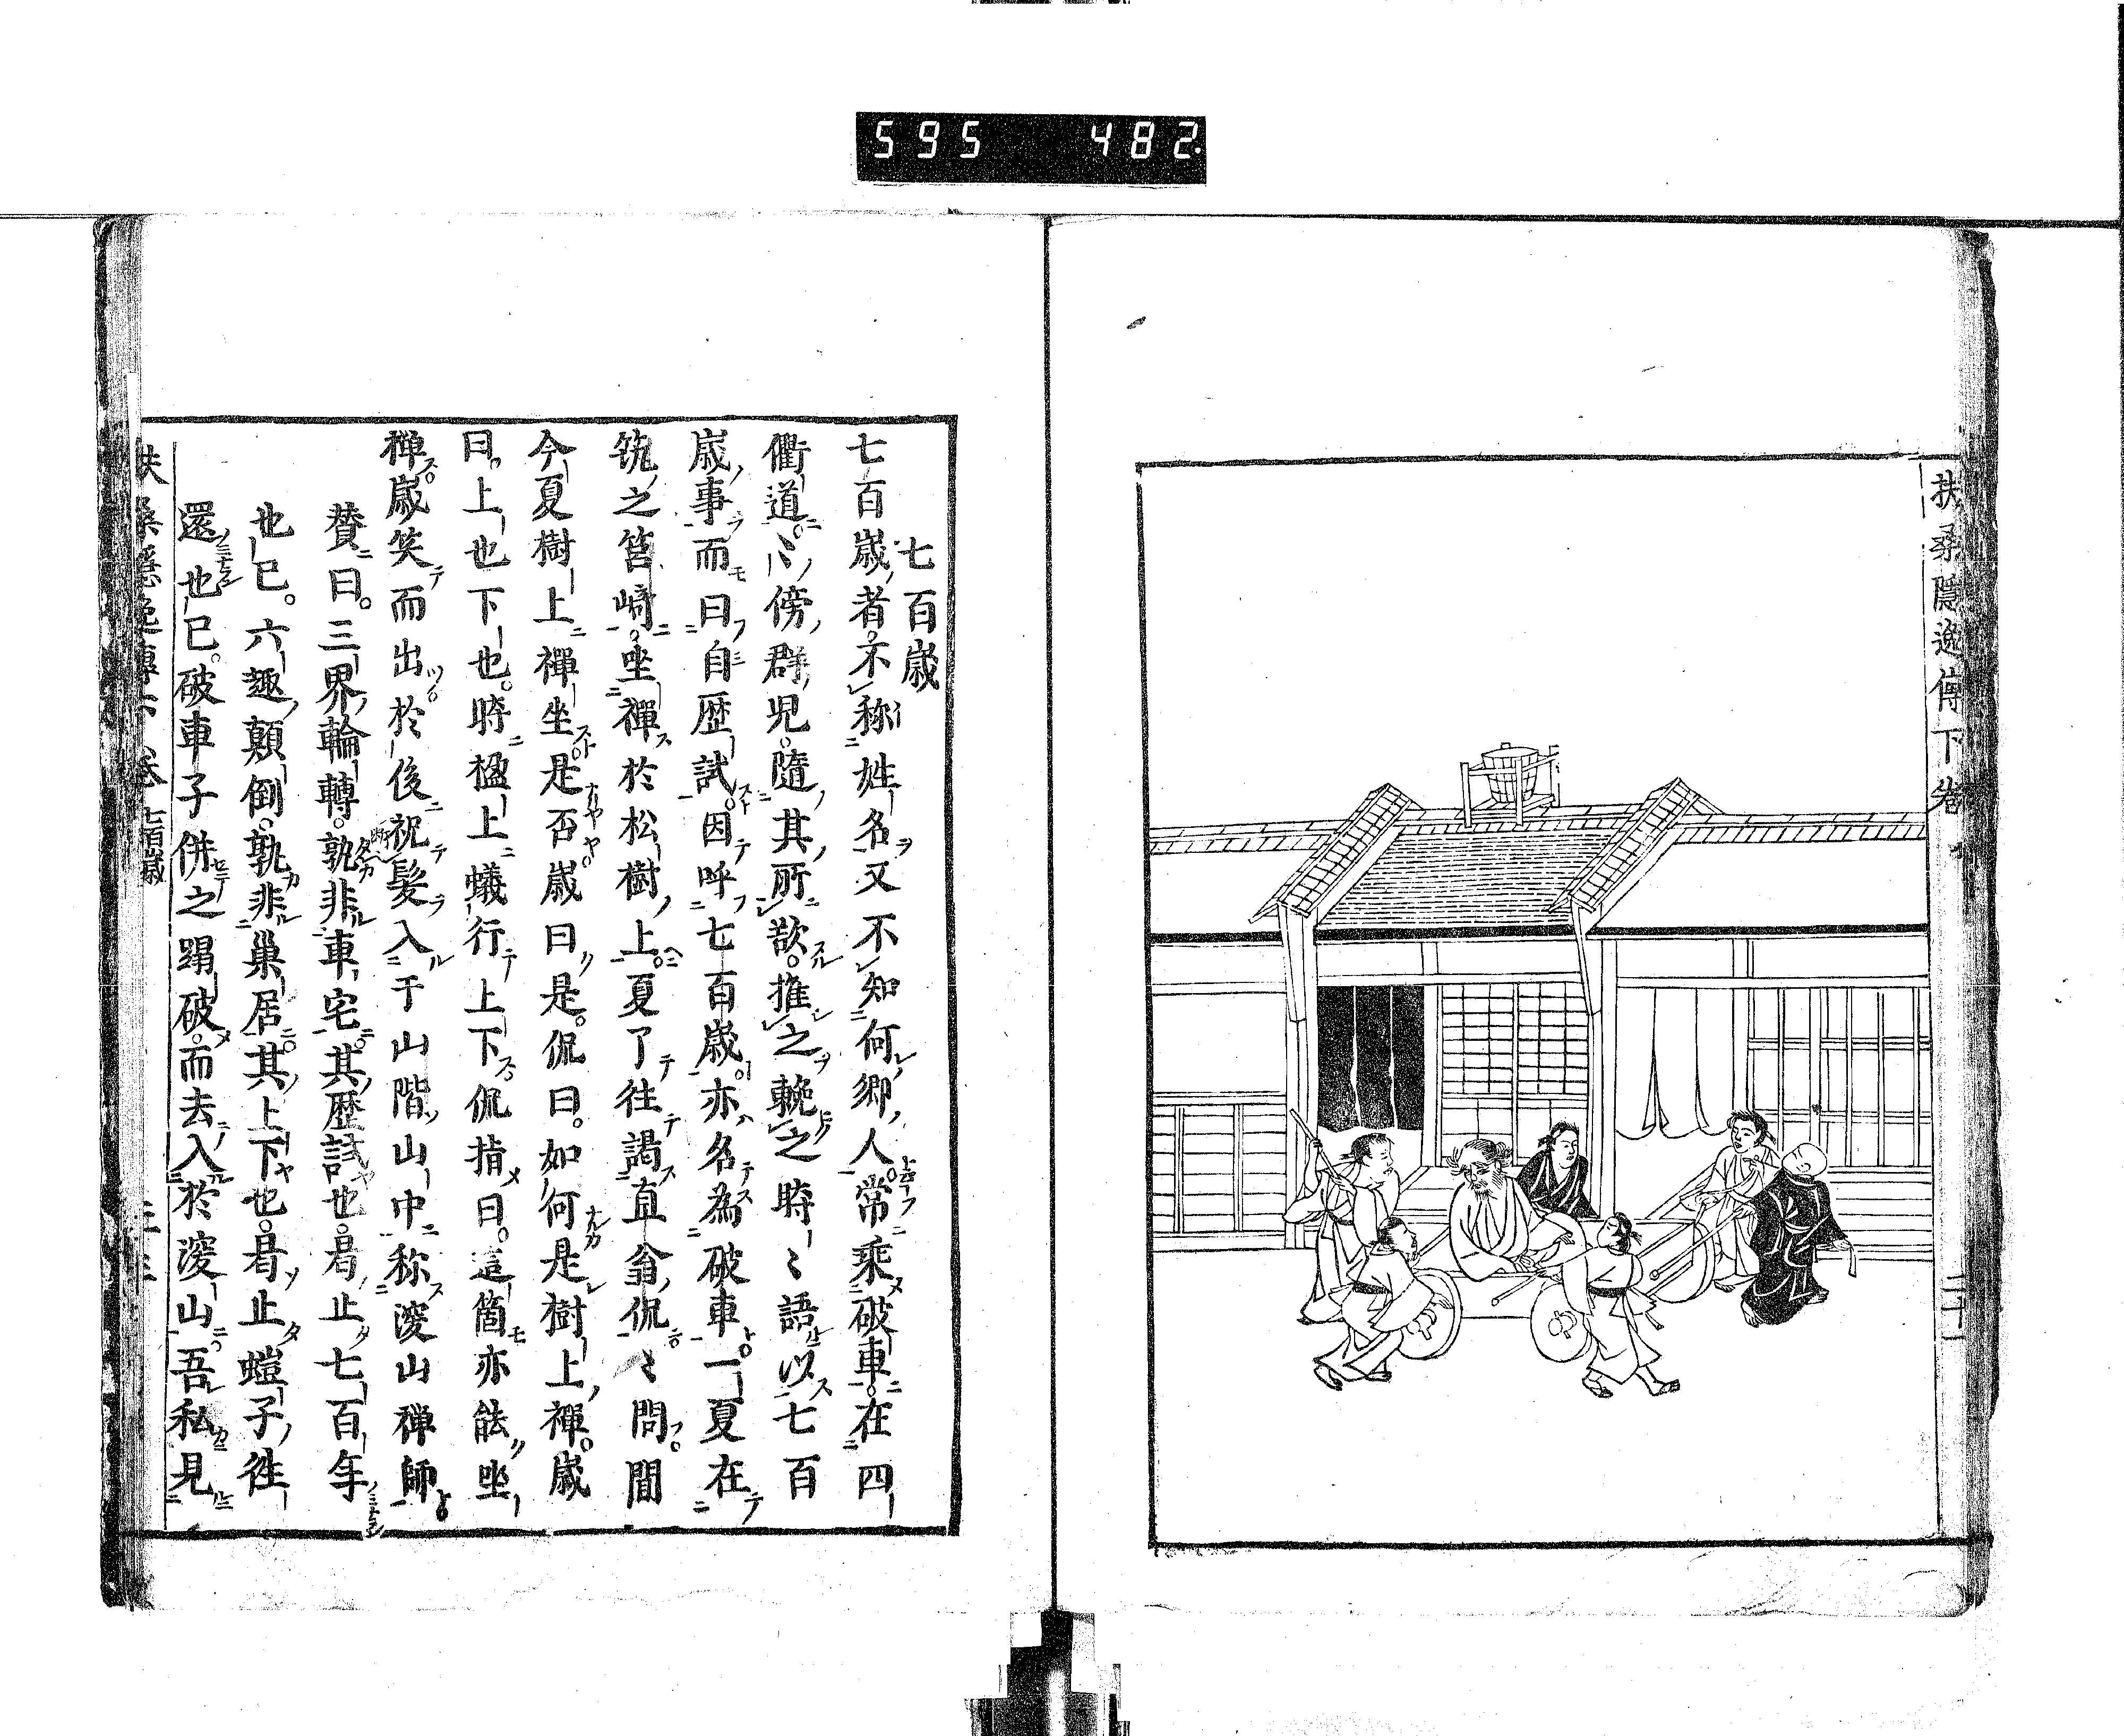 595 482.
扶桑隠逸傳下巻
二十一
七百歳
七百歳者不称姓名又不知何郷人常乗破車在四
衢道〻傍群児隨其所欲推之輓之時〻語以七百
歳事而曰自歴試因呼七百歳亦名為破車一夏在
筑之筥崎坐禪於松樹上夏了往謁直翁侃〻問聞
今夏樹上禪坐是否歳曰是侃曰如何是樹上禪歳
曰上也下也時楹上蟻行上下侃指曰這箇亦能坐
禅歳笑而出於後祝髪入于山階山中称深山禅師
賛曰三界輪轉孰非車宅其歴試也曷止七百年
也已六趣顛倒孰非巢居其上下也曷止螘子徃
還也已破車子併之蹋破而去入於深山吾私見
扶桑隠逸傳下巻 七百歳